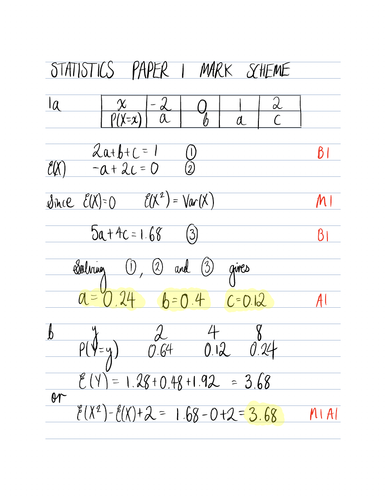 STATISTICS PAPER 1 MARK SCHEME
1a x -2 0 1 2
P(X=x) a b a c
2a+b+c = 1 ① B1
E(X) -a + 2c = 0 ②
Since E(X)=0 E(X²) = Var(X) M1
5a+4c = 1.68 ③ B1
Solving ①, ② and ③ gives
a = 0.24 b = 0.4 c = 0.12 A1
b y 2 4 8
P(Y=y) 0.64 0.12 0.24
E(Y) = 1.28+0.48+1.92 = 3.68
or
E(X²)-E(X)+2 = 1.68-0+2 = 3.68 M1 A1